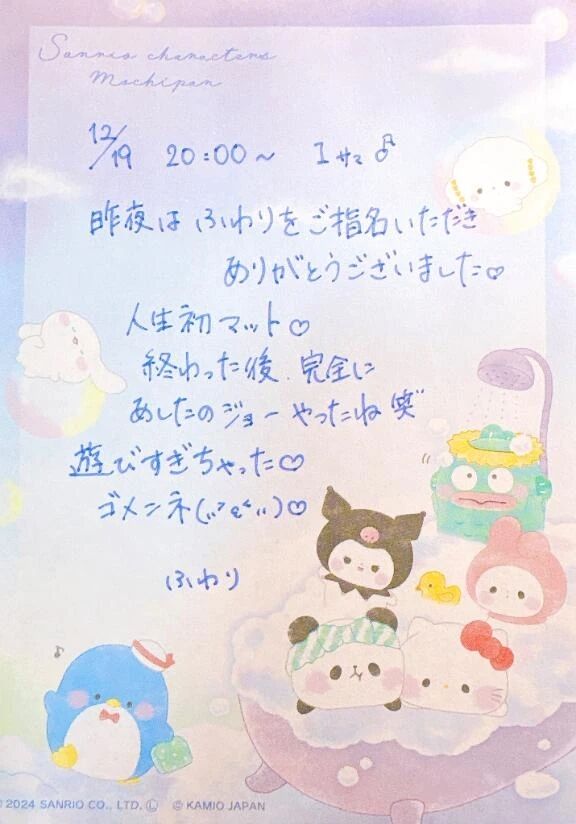 Sanrio characters
Mochipan
12/19 20:00～ Iサマ♂
昨夜は ふわりをご指名いただき
ありがとうございました♡
人生初マット♡
終わった後、完全に
あしたのジョーやったね 笑
遊びすぎちゃった♡
ゴメンネ
ふわり
♪
© 2024 SANRIO CO., LTD. Ⓛ © KAMIO JAPAN